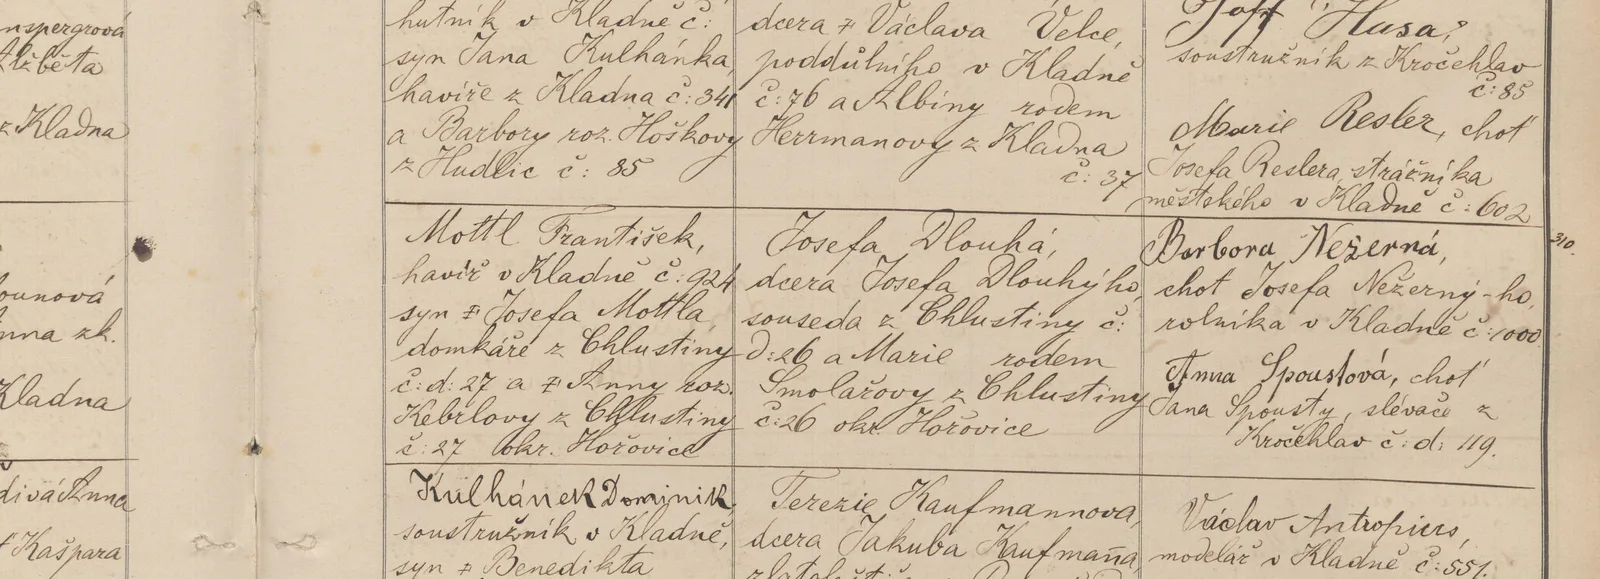 nspergrová
Alžběta
z Kladna
ounová
nna zk.
Kladna
divá Anna
Kašpara
hutník v Kladně č:
syn Jana Kulhánka,
havíře z Kladna č: 341
a Barbory roz. Hoškovy
z Hudlic č: 85
dcera ‡ Václava Velce,
poddůlního v Kladně
č: 76 a Albíny rodem
Herrmanovy z Kladna
č: 37
Husa,
soustružník z Kročehlav
č: 85
Marie Resler, choť
Josefa Reslera, strážníka
městského v Kladně č: 602
Mottl František,
havíř v Kladně č: 924
syn ‡ Josefa Mottla,
domkáře z Chlustiny
č: d: 27 a ‡ Anny roz.
Kebrlovy z Chlustiny
č: 27 okr. Hořovice
Josefa Dlouhá,
dcera Josefa Dlouhýho,
souseda z Chlustiny č:
d: 26 a Marie rodem
Smolařovy z Chlustiny
č: 26 okr. Hořovice
Barbora Nežerná,
choť Josefa Nežerný-ho,
rolníka v Kladně č: 1000.
Anna Spoustová, choť
Jana Spousty, slévače z
Kročehlav č: d: 119.
310.
Kulhánek Dominik,
soustružník v Kladně,
syn ‡ Benedikta
Terezie Kaufmannova,
dcera Jakuba Kaufman̄a
Václav Antropius,
modelář v Kladně č: 551.